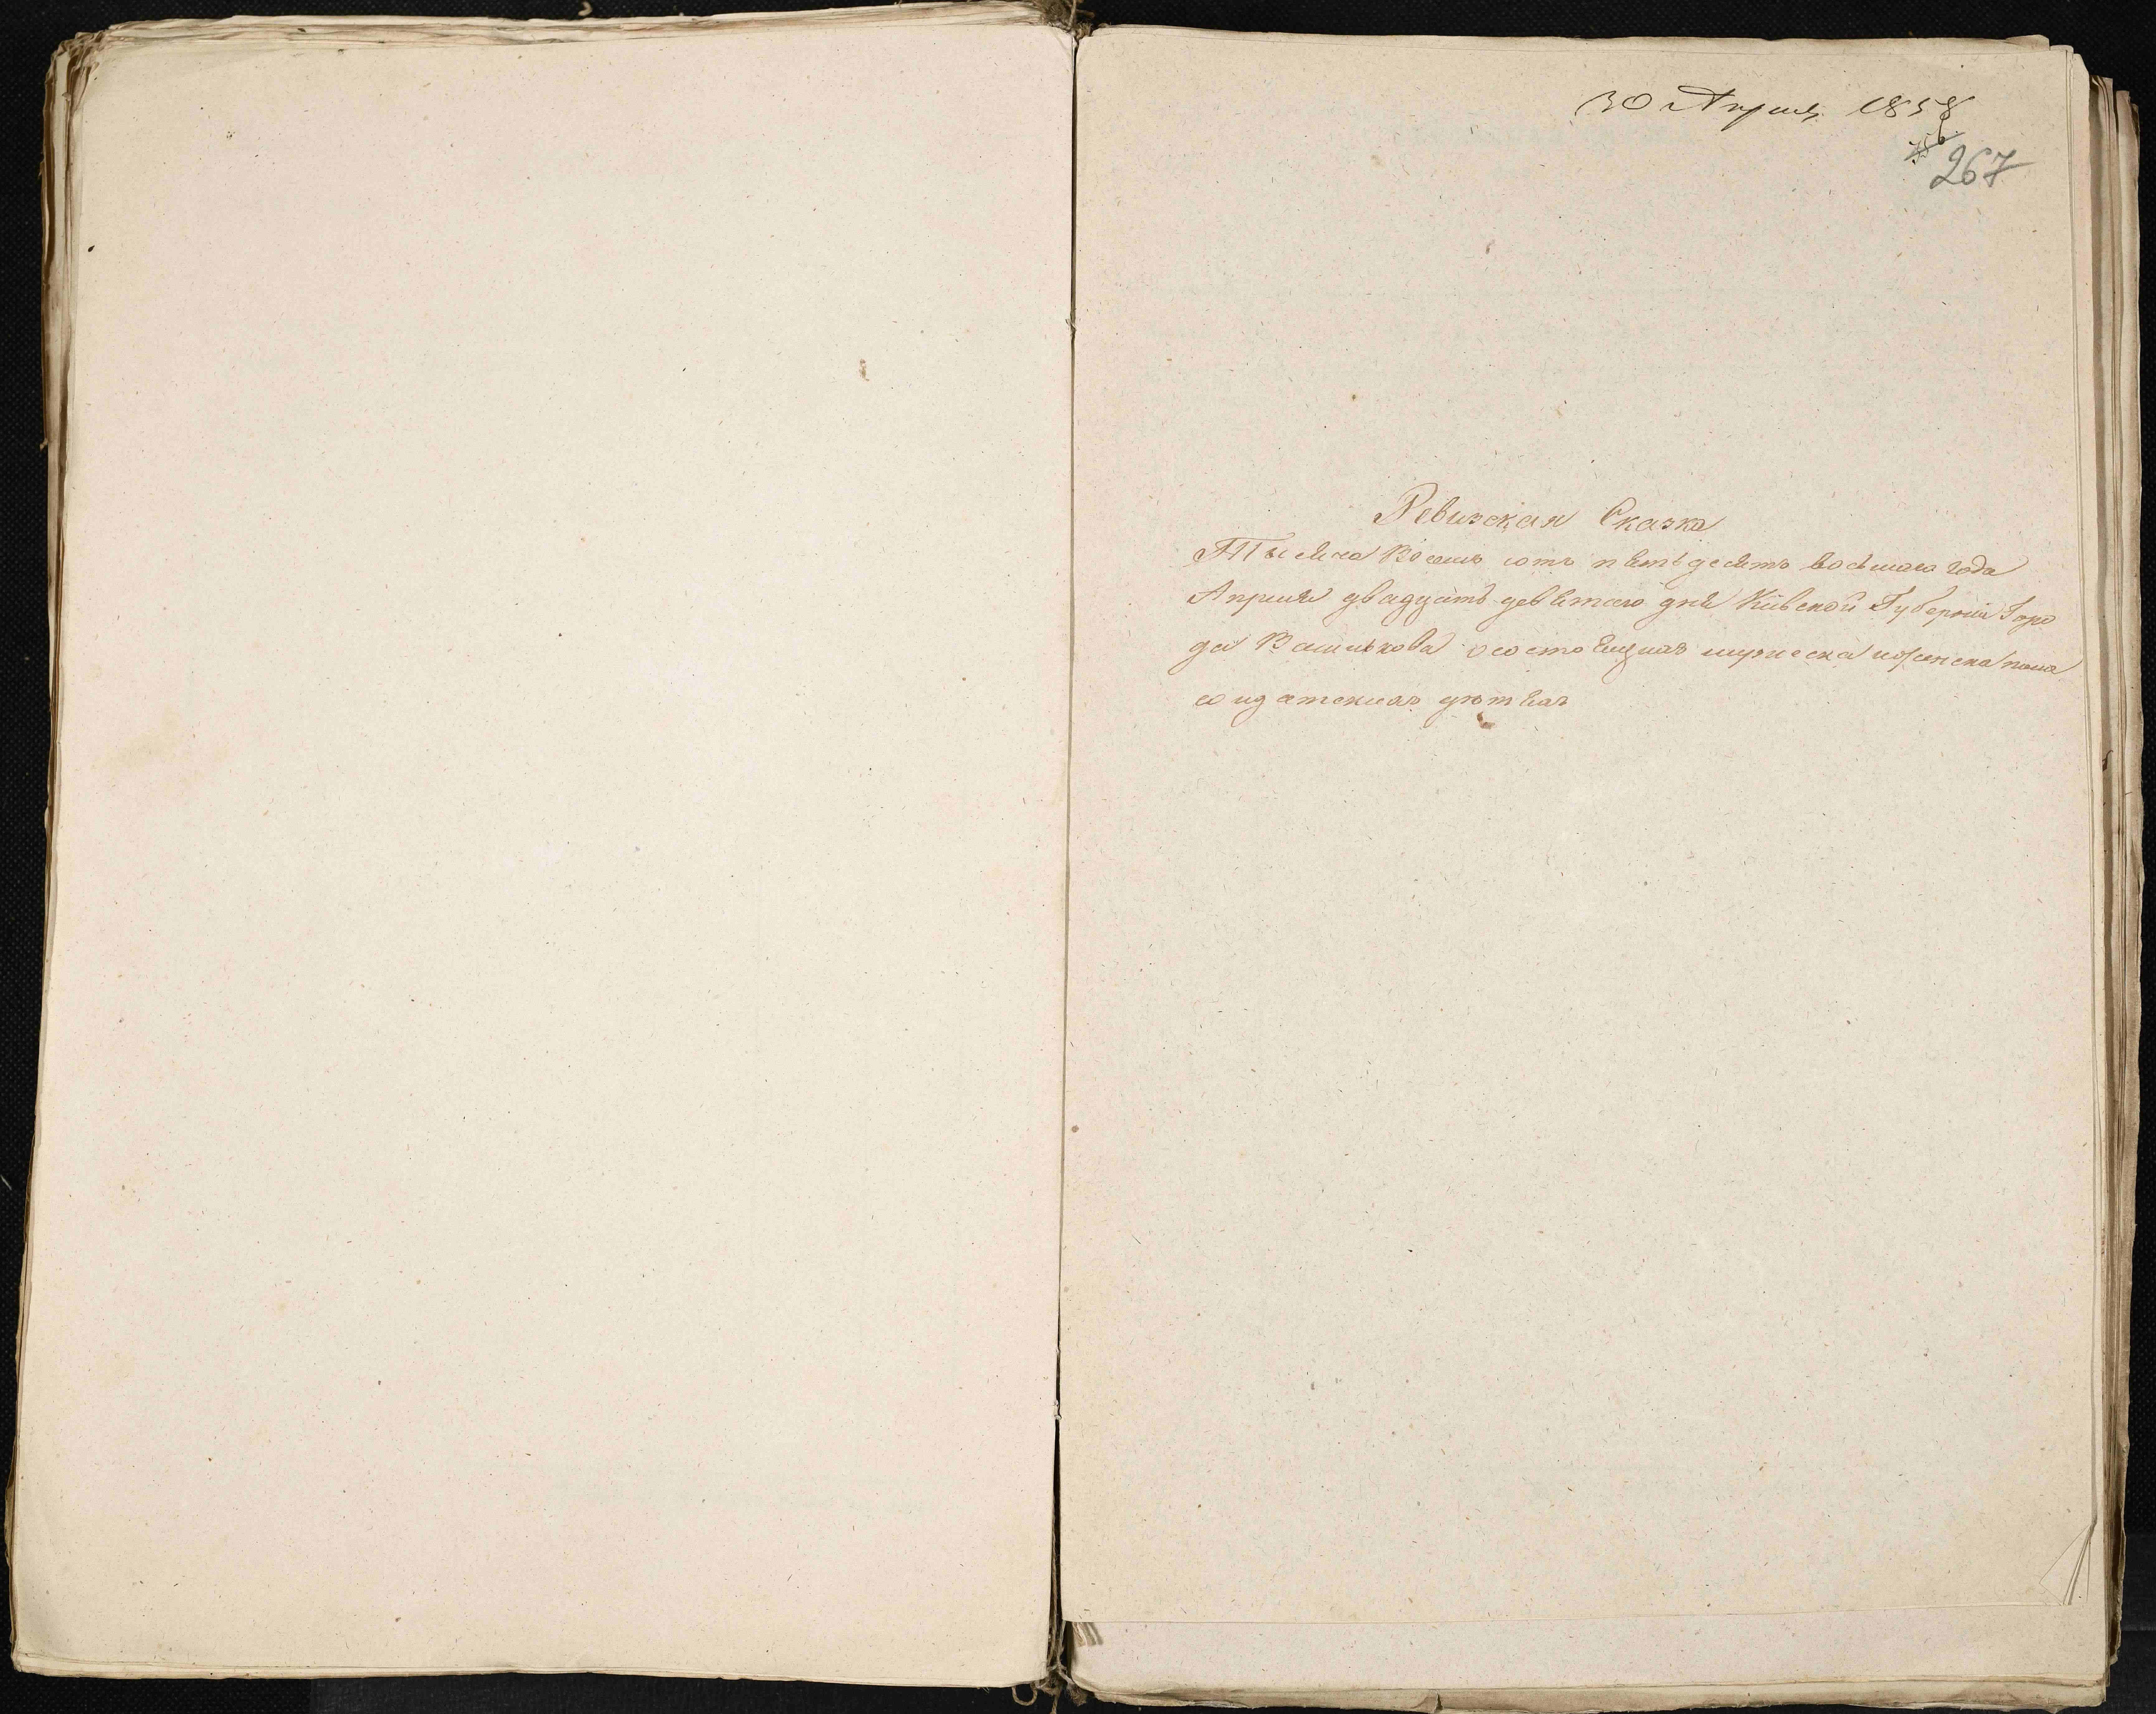 30 Апреля 1858
267
Ревизская Сказка
Тысяча Восемь сотъ пѣтьдесѣтъ восьмаго года
Апрелѣ двадцать девѣтого днѣ Кіевской Губерніи Горо
да Василькова о состоѣщихъ мужеска и женска пола
солдатскихъ дѣтѣхъ